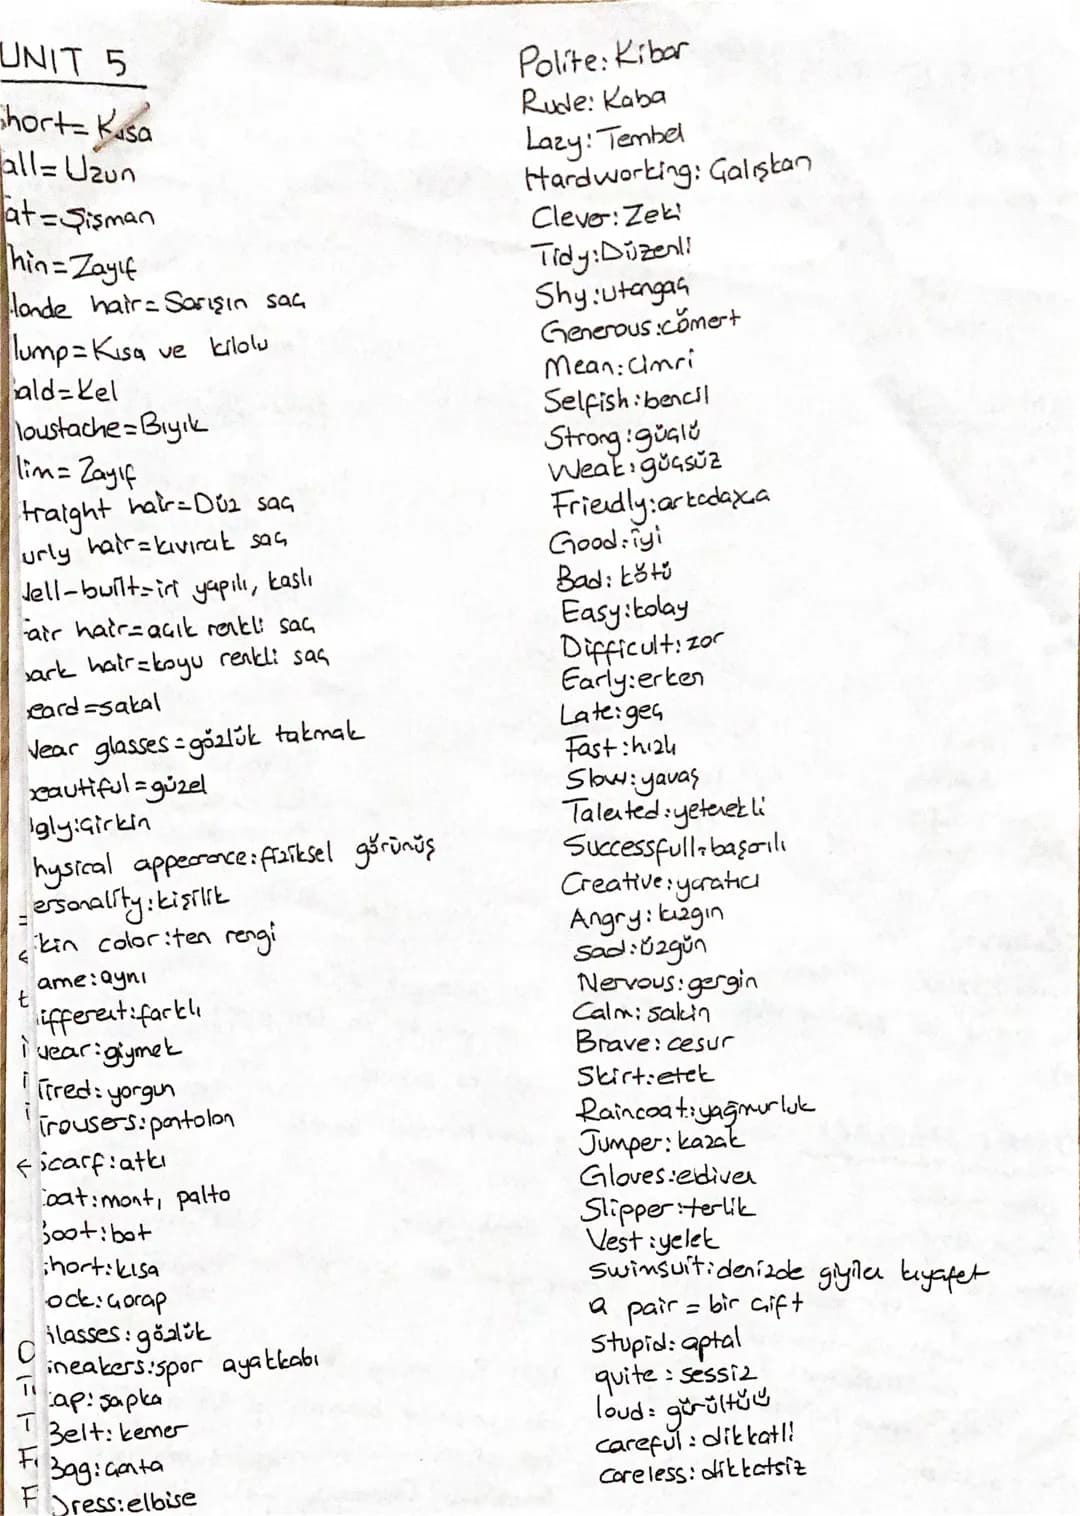 UNIT 5
hort= Kısa
all= Uzun
at= Şişman
hin= Zayıf
londe hair= Sarışın saç
lump= Kısa ve kilolu
ald= Kel
oustache= Bıyık
lim= Zayıf
traight hair= Düz saç
urly hair= kıvırcık saç
ell-built= iri yapılı, kaslı
air hair= açık renkli saç
ark hair= koyu renkli saç
eard= sakal
ear glasses= gözlük takmak
eautiful= güzel
gly: çirkin
hysical appearance: fiziksel görünüş
ersonality: kişilik
kin color: ten rengi
ame: aynı
ifferent: farklı
wear: giymek
Tired: yorgun
Trousers: pantolon
Scarf: atkı
oat: mont, palto
Boot: bot
hort: kısa
ock: çorap
lasses: gözlük
ineakers: spor ayakkabı
ap: şapka
Belt: kemer
Bag: çanta
Dress: elbise
Polite: Kibar
Rude: Kaba
Lazy: Tembel
Hardworking: Çalışkan
Clever: Zeki
Tidy: Düzenli
Shy: utangaç
Generous: cömert
Mean: cimri
Selfish: bencil
Strong: güçlü
Weak: güçsüz
Friendly: arkadaşça
Good: iyi
Bad: kötü
Easy: kolay
Difficult: zor
Early: erken
Late: geç
Fast: hızlı
Slow: yavaş
Talented: yetenekli
Successfull: başarılı
Creative: yaratıcı
Angry: kızgın
Sad: üzgün
Nervous: gergin
Calm: sakin
Brave: cesur
Skirt: etek
Raincoat: yağmurluk
Jumper: kazak
Gloves: eldiven
Slipper: terlik
Vest: yelek
Swimsuit: denizde giyilen kıyafet
a pair = bir çift
Stupid: aptal
quite : sessiz
loud: gürültülü
careful : dikkatli
careless: dikkatsiz